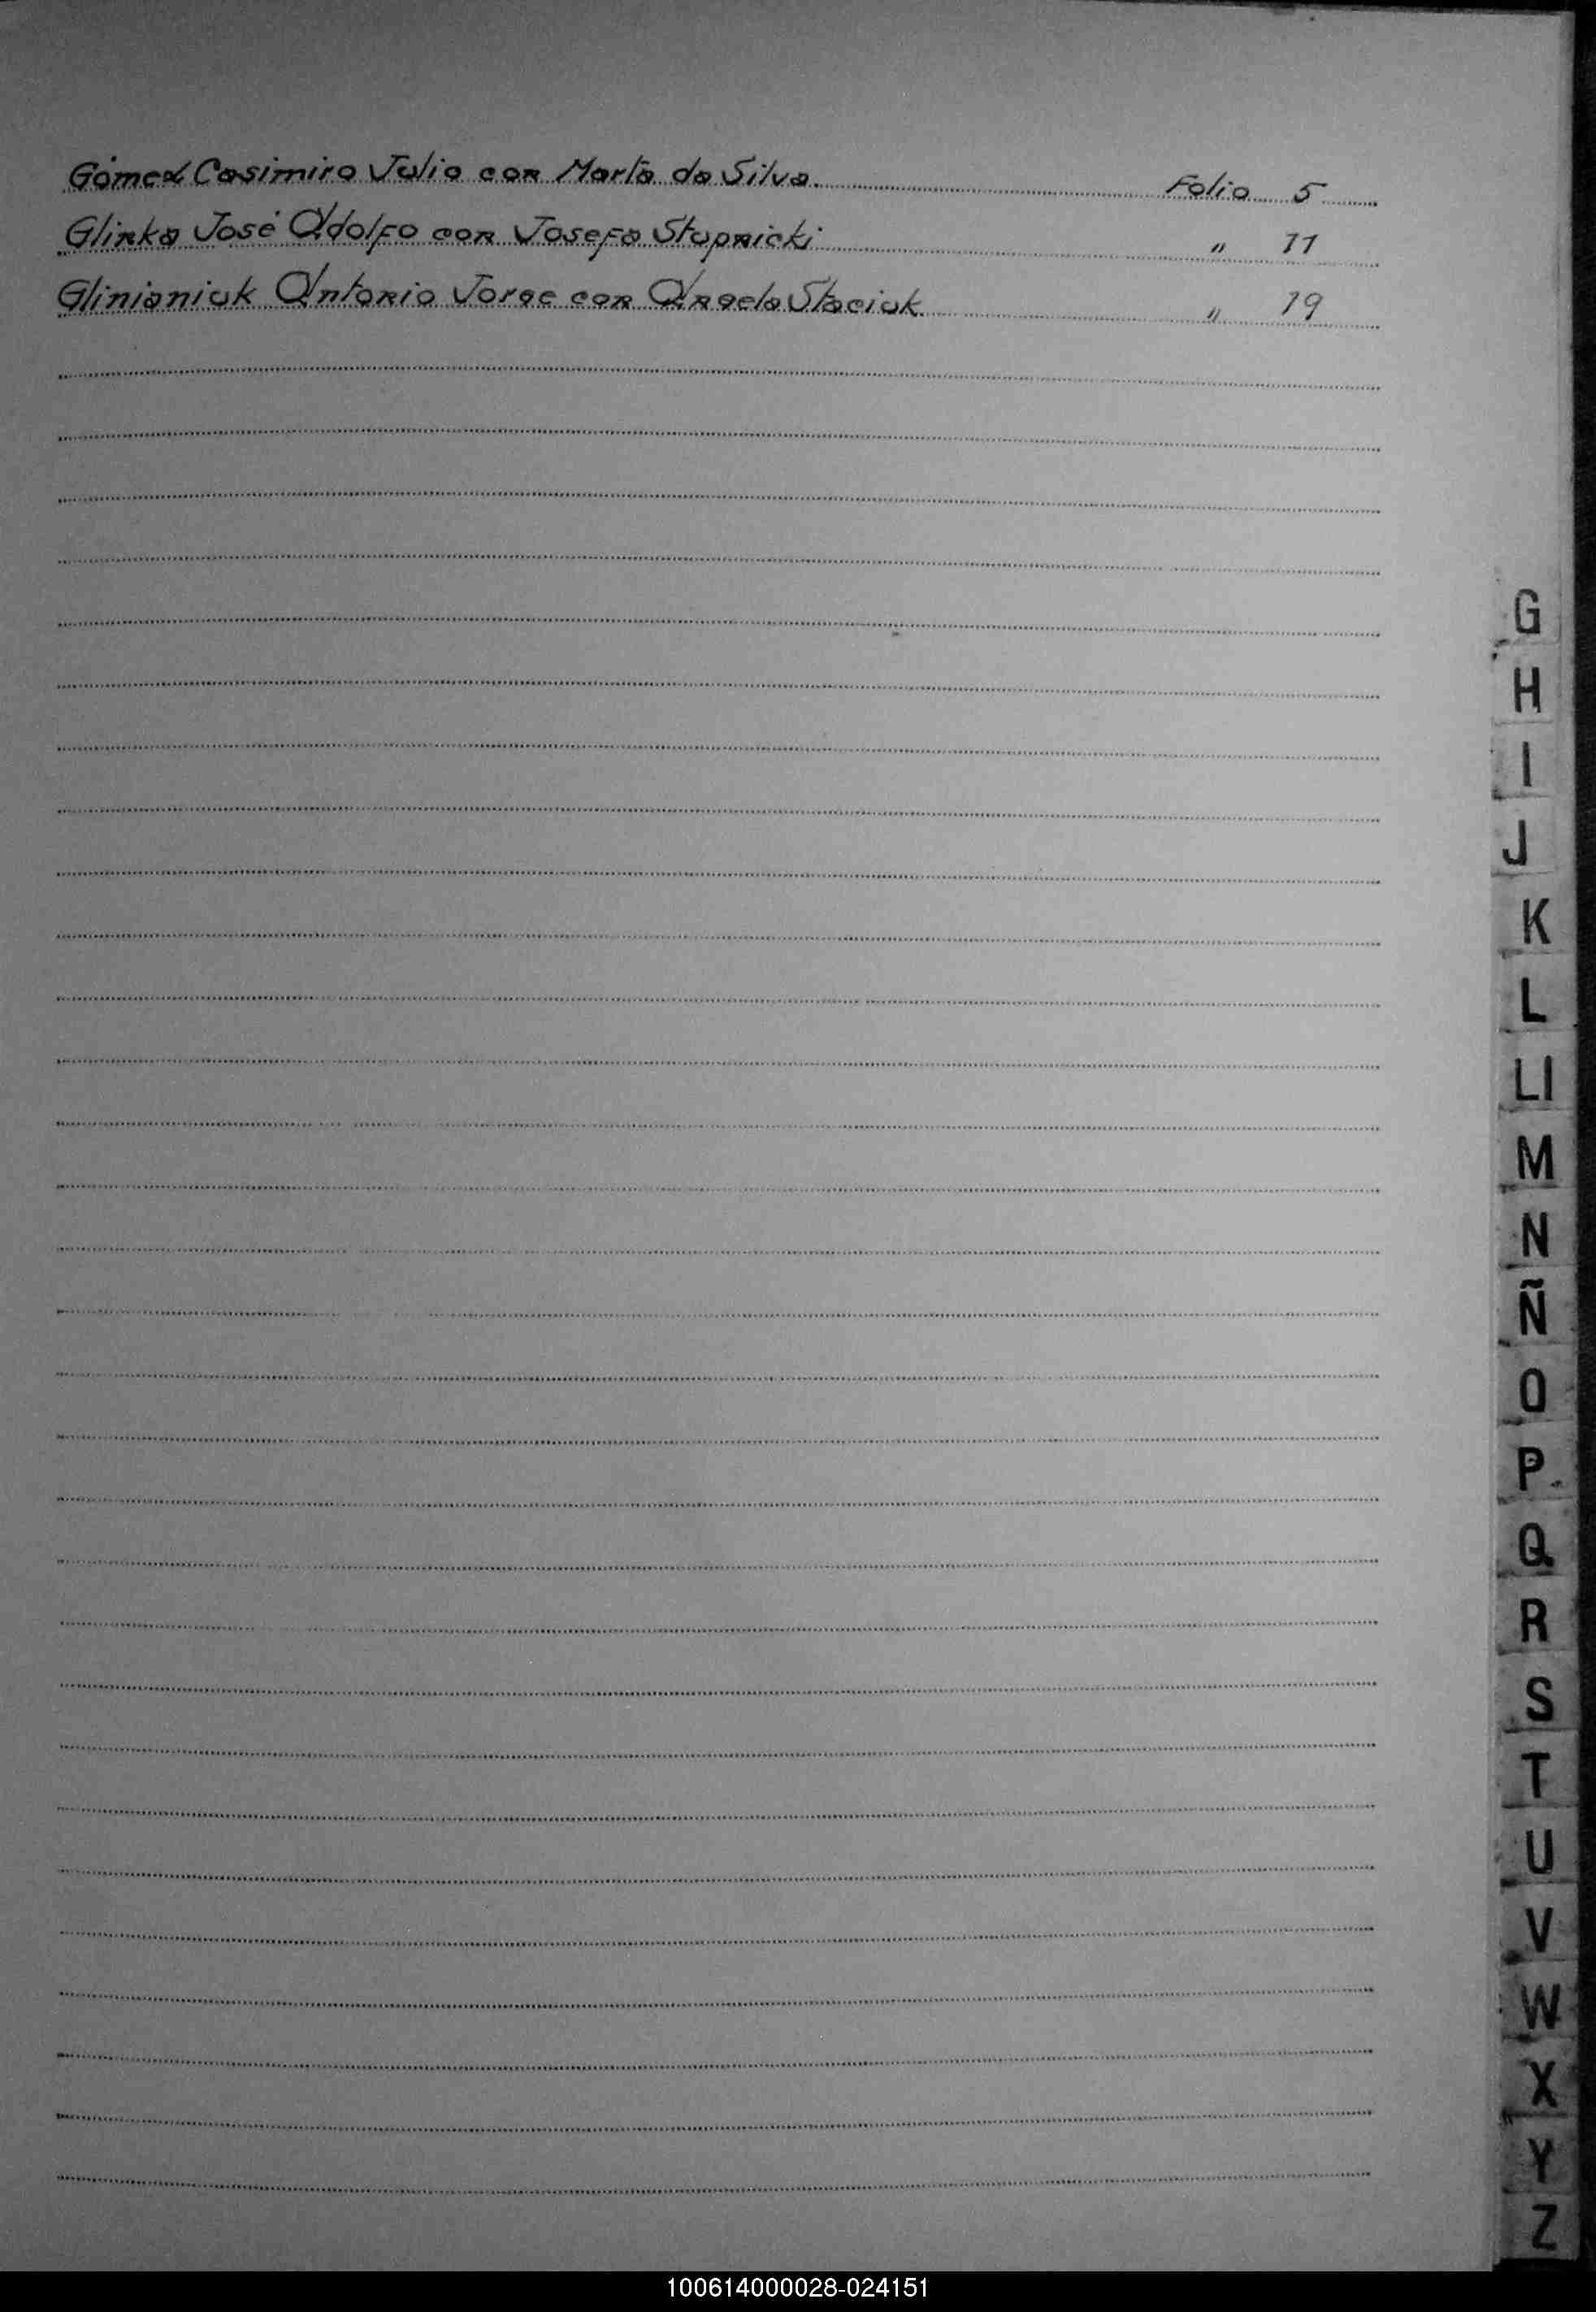 Gómez Casimiro Julio con Marta da Silva Folio 5
Glinka José Adolfo con Josefa Stupnicki " 11
Glinianiuk Antonio Jorge con Angela Staciuk " 19
G
H
I
J
K
L
Ll
M
N
Ñ
O
P
Q
R
S
T
U
V
W
X
Y
Z
100614000028-024151